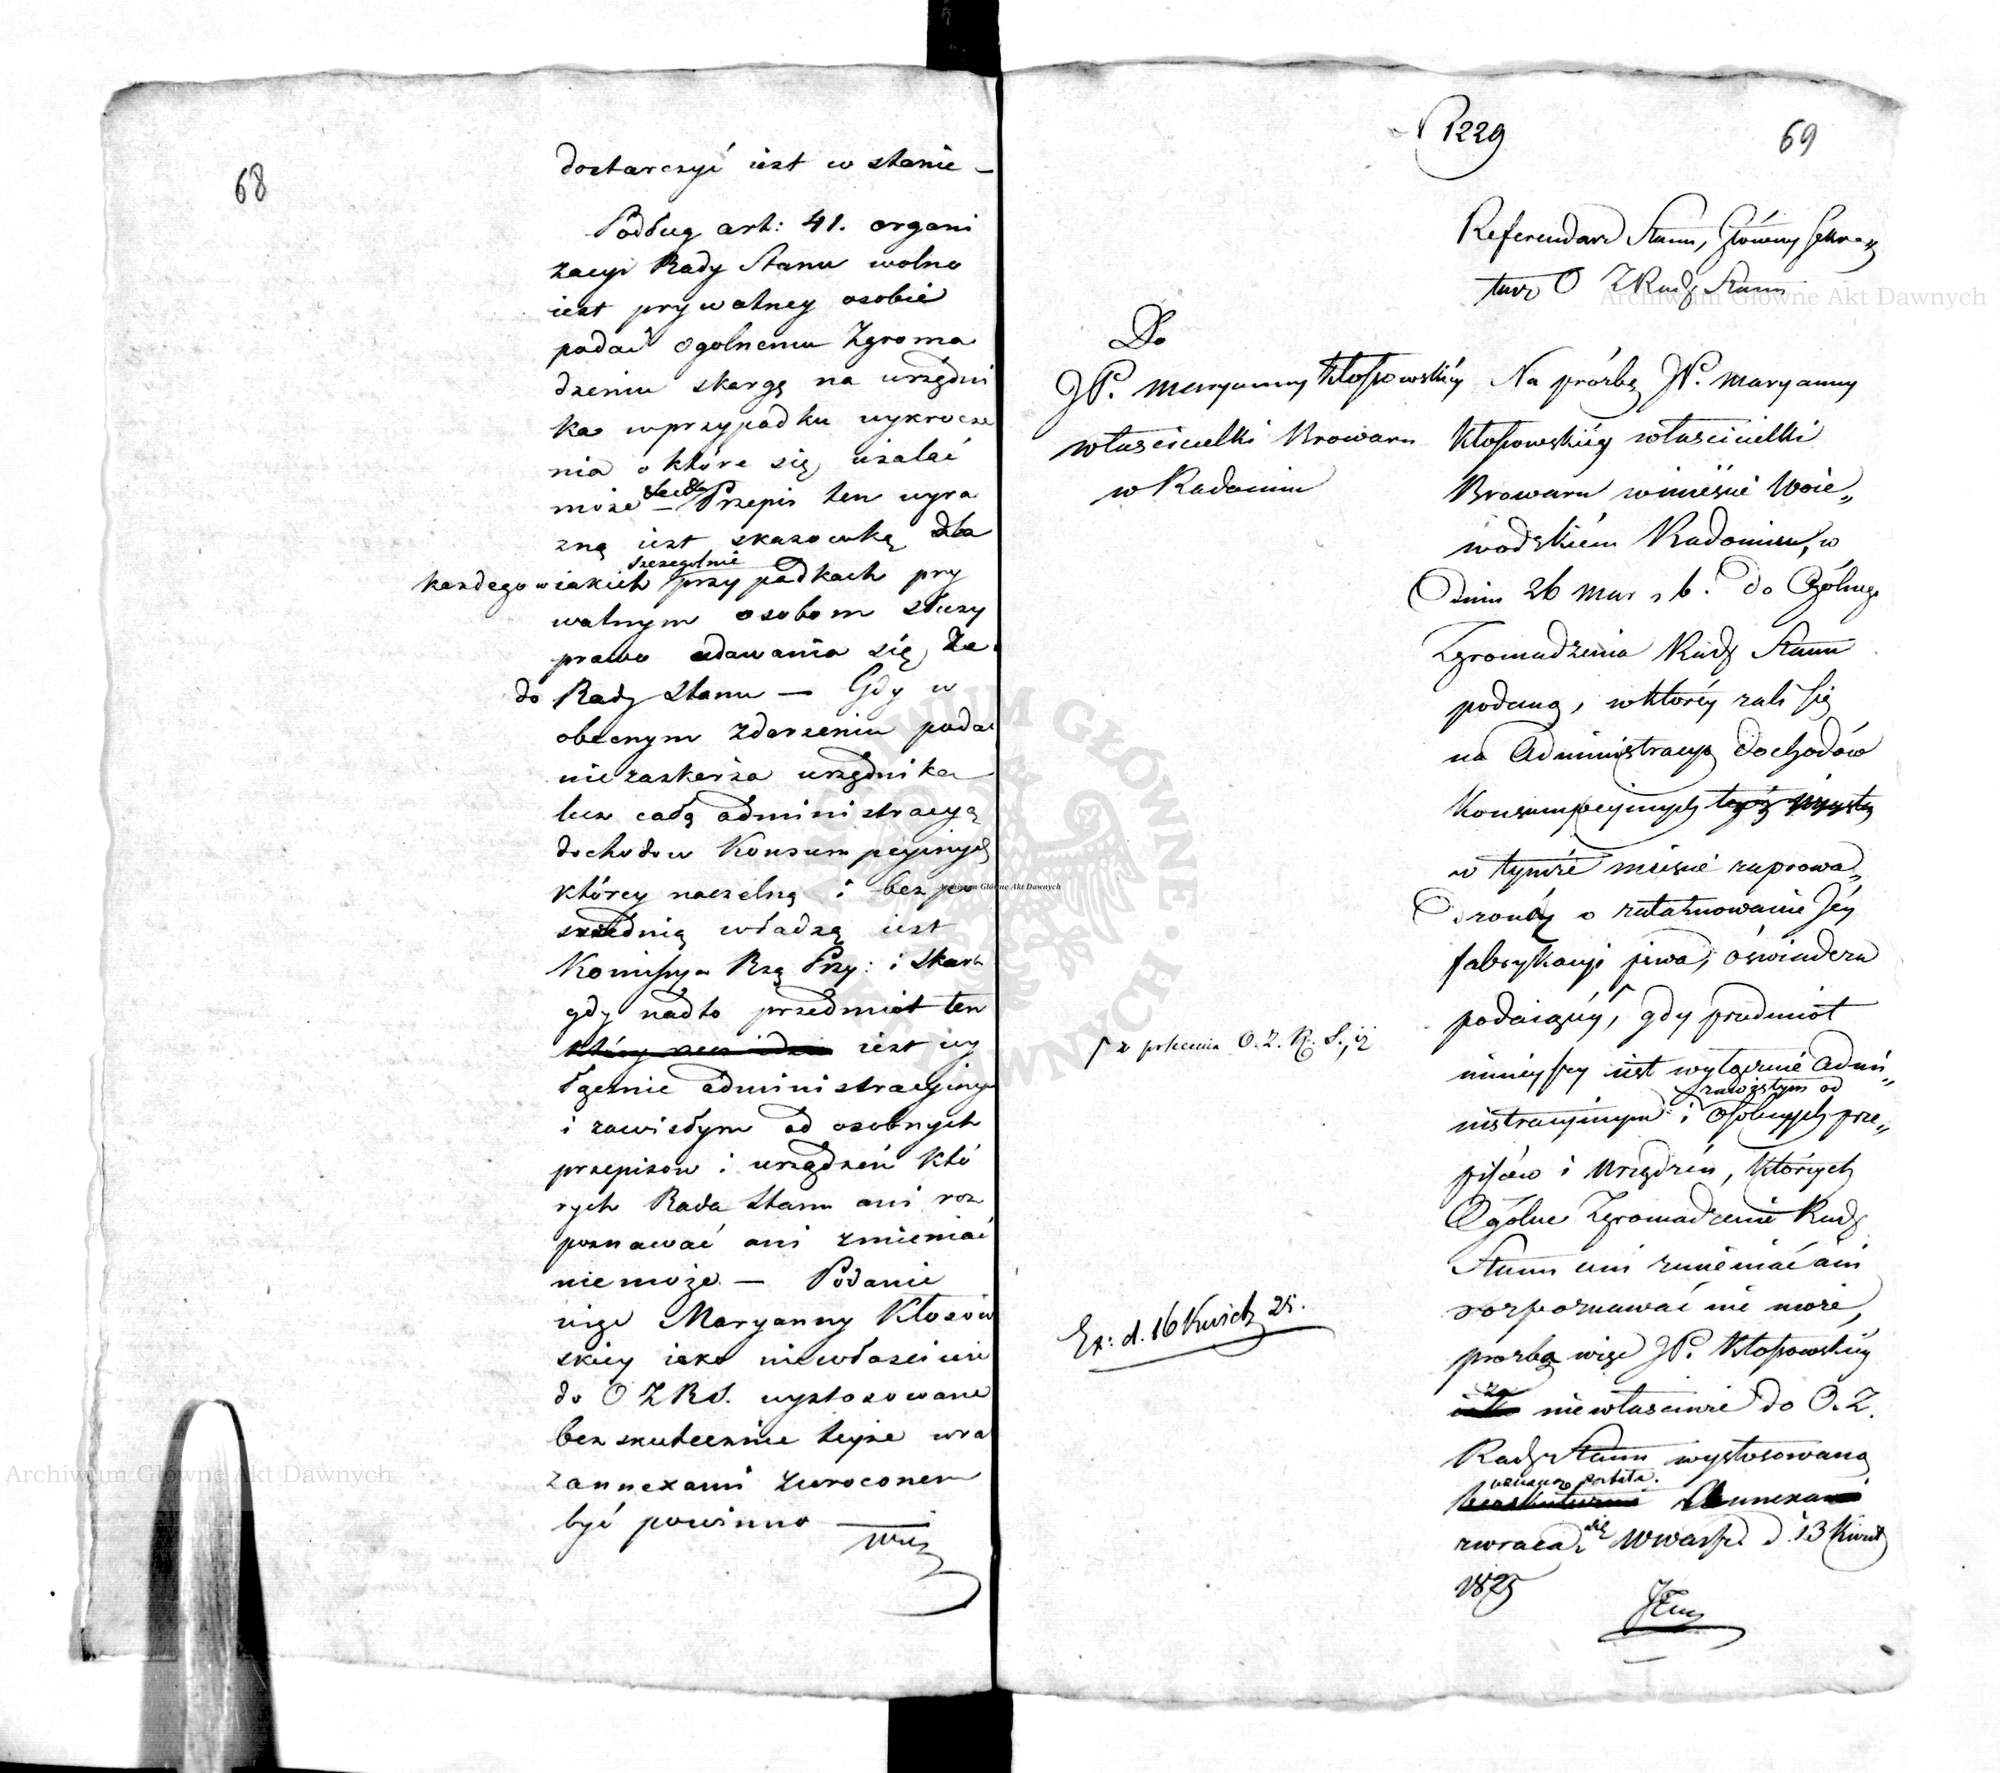 68
dostarczyć iest w stanie –
Podług art: 41. organi
zacyi Rady Stanu wolno
iest prywatney osobie
podać ogolnemu Zgroma
dzeniu skargę na urzędni
ka w przypadku wykrocze
nia o które się użalać
może – Przepis ten wyra
zną iest skazowką dla
szczegolnie
każdego w iakich przypadkach pry
watnym osobom służy
prawo udawania się
do Rady Stanu – Gdy w
obecnym zdarzeniu poda
nie zaskarża urzędnika
lecz całą administracyą
dochodow Konsumpcyinych
którey naczelną i bezpo
srednią władzą iest
Kommissya Rzą Przy: i Skarb
gdy nadto przedmiot ten
iest wy
łącznie administracyinym
i zawisłym od osobnych
przepisow i urządzeń któ
rych Rada Stanu ani roz
poznawać ani zmieniać
nie może – Podanie
więc Maryanny Kłosow
skiey iako niewłaściwie
do O Z R S. wystosowane
bezskutecznie teyże wra
z annexami zwroconem
być powinno
N 1229
69
Referendarz Stanu, Główny Sekre
tarz O Z Rady Stanu
Do
JP. Maryanny Kłossowskiéy
właścicielki Browaru
w Radomiu
Na proźbę JP. Maryanny
Kłossowskiéy właścicielki
Browaru w mieście Woie„
wodzkiém Radomiu, w
Dniu 26 Mar. r. b. do Ogólnego
Zgromadzenia Rady Stanu
podaną, w któréy żali się
na Administracyą dochodów
Konsumpcyinych
w tymże mieście zaprowa„
dzoną o zatamowanie Jéy
fabrykacyi piwa, oświadcza
podaiącéy, gdy przedmiot
ninieyszy iest wyłącznie Admi„
zawisłym od
nistracyinym i osobnych prze„
pisów i urządzeń, których
Ogólne Zgromadzenie Rady
Stanu ani zmieniać ani
rozpoznawać nie może,
prozbę więc JP. Kłossowskiéy
za
niewłaściwie do O. Z.
Rady Stanu wystosowaną
Annexami
zwraca się. w Warsz. d. 13 Kwiet
1825
z polecenia O. Z. R. S., iż
Ex: d. 16 Kwiet 25.